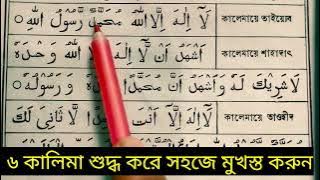 لَآ اِلٰهَ اِلَّا اللّٰهُ مُحَمَّدٌ رَّسُوْلُ اللّٰهِ ○ কালেমায়ে তাইয়্যেব
اَشْهَدُ اَنْ لَّآ اِلٰهَ اِلَّا اللّٰهُ وَحْدَهٗ কালেমায়ে শাহাদাৎ
لَا شَرِيْكَ لَهٗ وَ اَشْهَدُ اَنَّ مُحَمَّدًا عَبْدُهٗ وَ رَسُوْلُهٗ ○
لَآ اِلٰهَ اِلَّآ اَنْتَ وَاحِدًا لَّا ثَانِىَ لَكَ কালেমায়ে তাওহীদ
৬ কালিমা শুদ্ধ করে সহজে মুখস্ত করুন